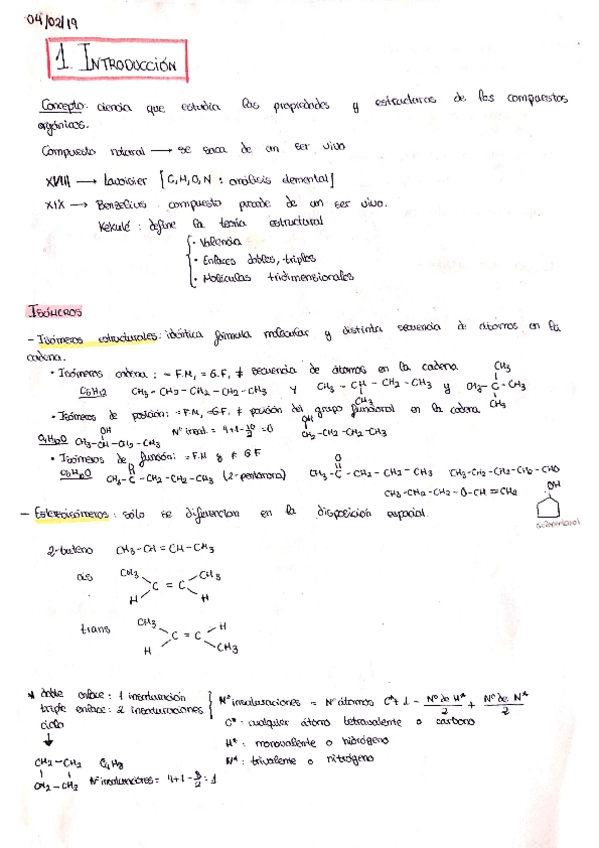 04/02/19
1. INTRODUCCIÓN
Concepto: ciencia que estudia las propiedades y estructuras de los compuestos
orgánicos.
Compuesto natural → se saca de un ser vivo
XVIII → Lavoisier [C, H, O, N : análisis elemental]
XIX → Berzelius: compuesto procede de un ser vivo.
Kekulé: define la teoría estructural
· Valencia
· Enlaces dobles, triples
· Moléculas tridimensionales
ISÓMEROS
- Isómeros estructurales: idéntica fórmula molecular y distinta secuencia de átomos en la
cadena.
• Isómeros cadena: = F.M, = G.F, ≠ secuencia de átomos en la cadena
CH3
C5H12 CH3-CH2-CH2-CH2-CH3 y CH3-CH-CH2-CH3 y CH3-C-CH3
CH3 CH3
• Isómeros de posición: = F.M, =G.F, ≠ posición del grupo funcional en la cadena
OH Nº insat. = 4+1-10/2 = 0 OH
C4H10O CH3-CH-CH2-CH3 CH2-CH2-CH2-CH3
• Isómeros de función: = F.M y ≠ G.F
C5H10O CH3-C-CH2-CH2-CH3 (2-pentanona) O CH3-C-CH2-CH2-CH3 CH3-CH2-CH2-CH2-CHO
CH3-CH2-CH2-O-CH=CH2 OH
ciclopentanol
- Estereoisómeros: sólo se diferencian en la disposición espacial.
2-buteno CH3-CH=CH-CH3
cis CH3 CH3
C = C
H H
trans CH3 H
C = C
H CH3
* doble enlace: 1 insaturación
triple enlace: 2 insaturaciones
ciclo
Nº insaturaciones = Nº átomos C*+1 - Nº de H*/2 + Nº de N*/2
C*: cualquier átomo tetravalente o carbono
H*: monovalente o hidrógeno
N*: trivalente o nitrógeno
CH2-CH2 C4H8
CH2-CH2 Nº insaturaciones = 4+1-8/2 = 1